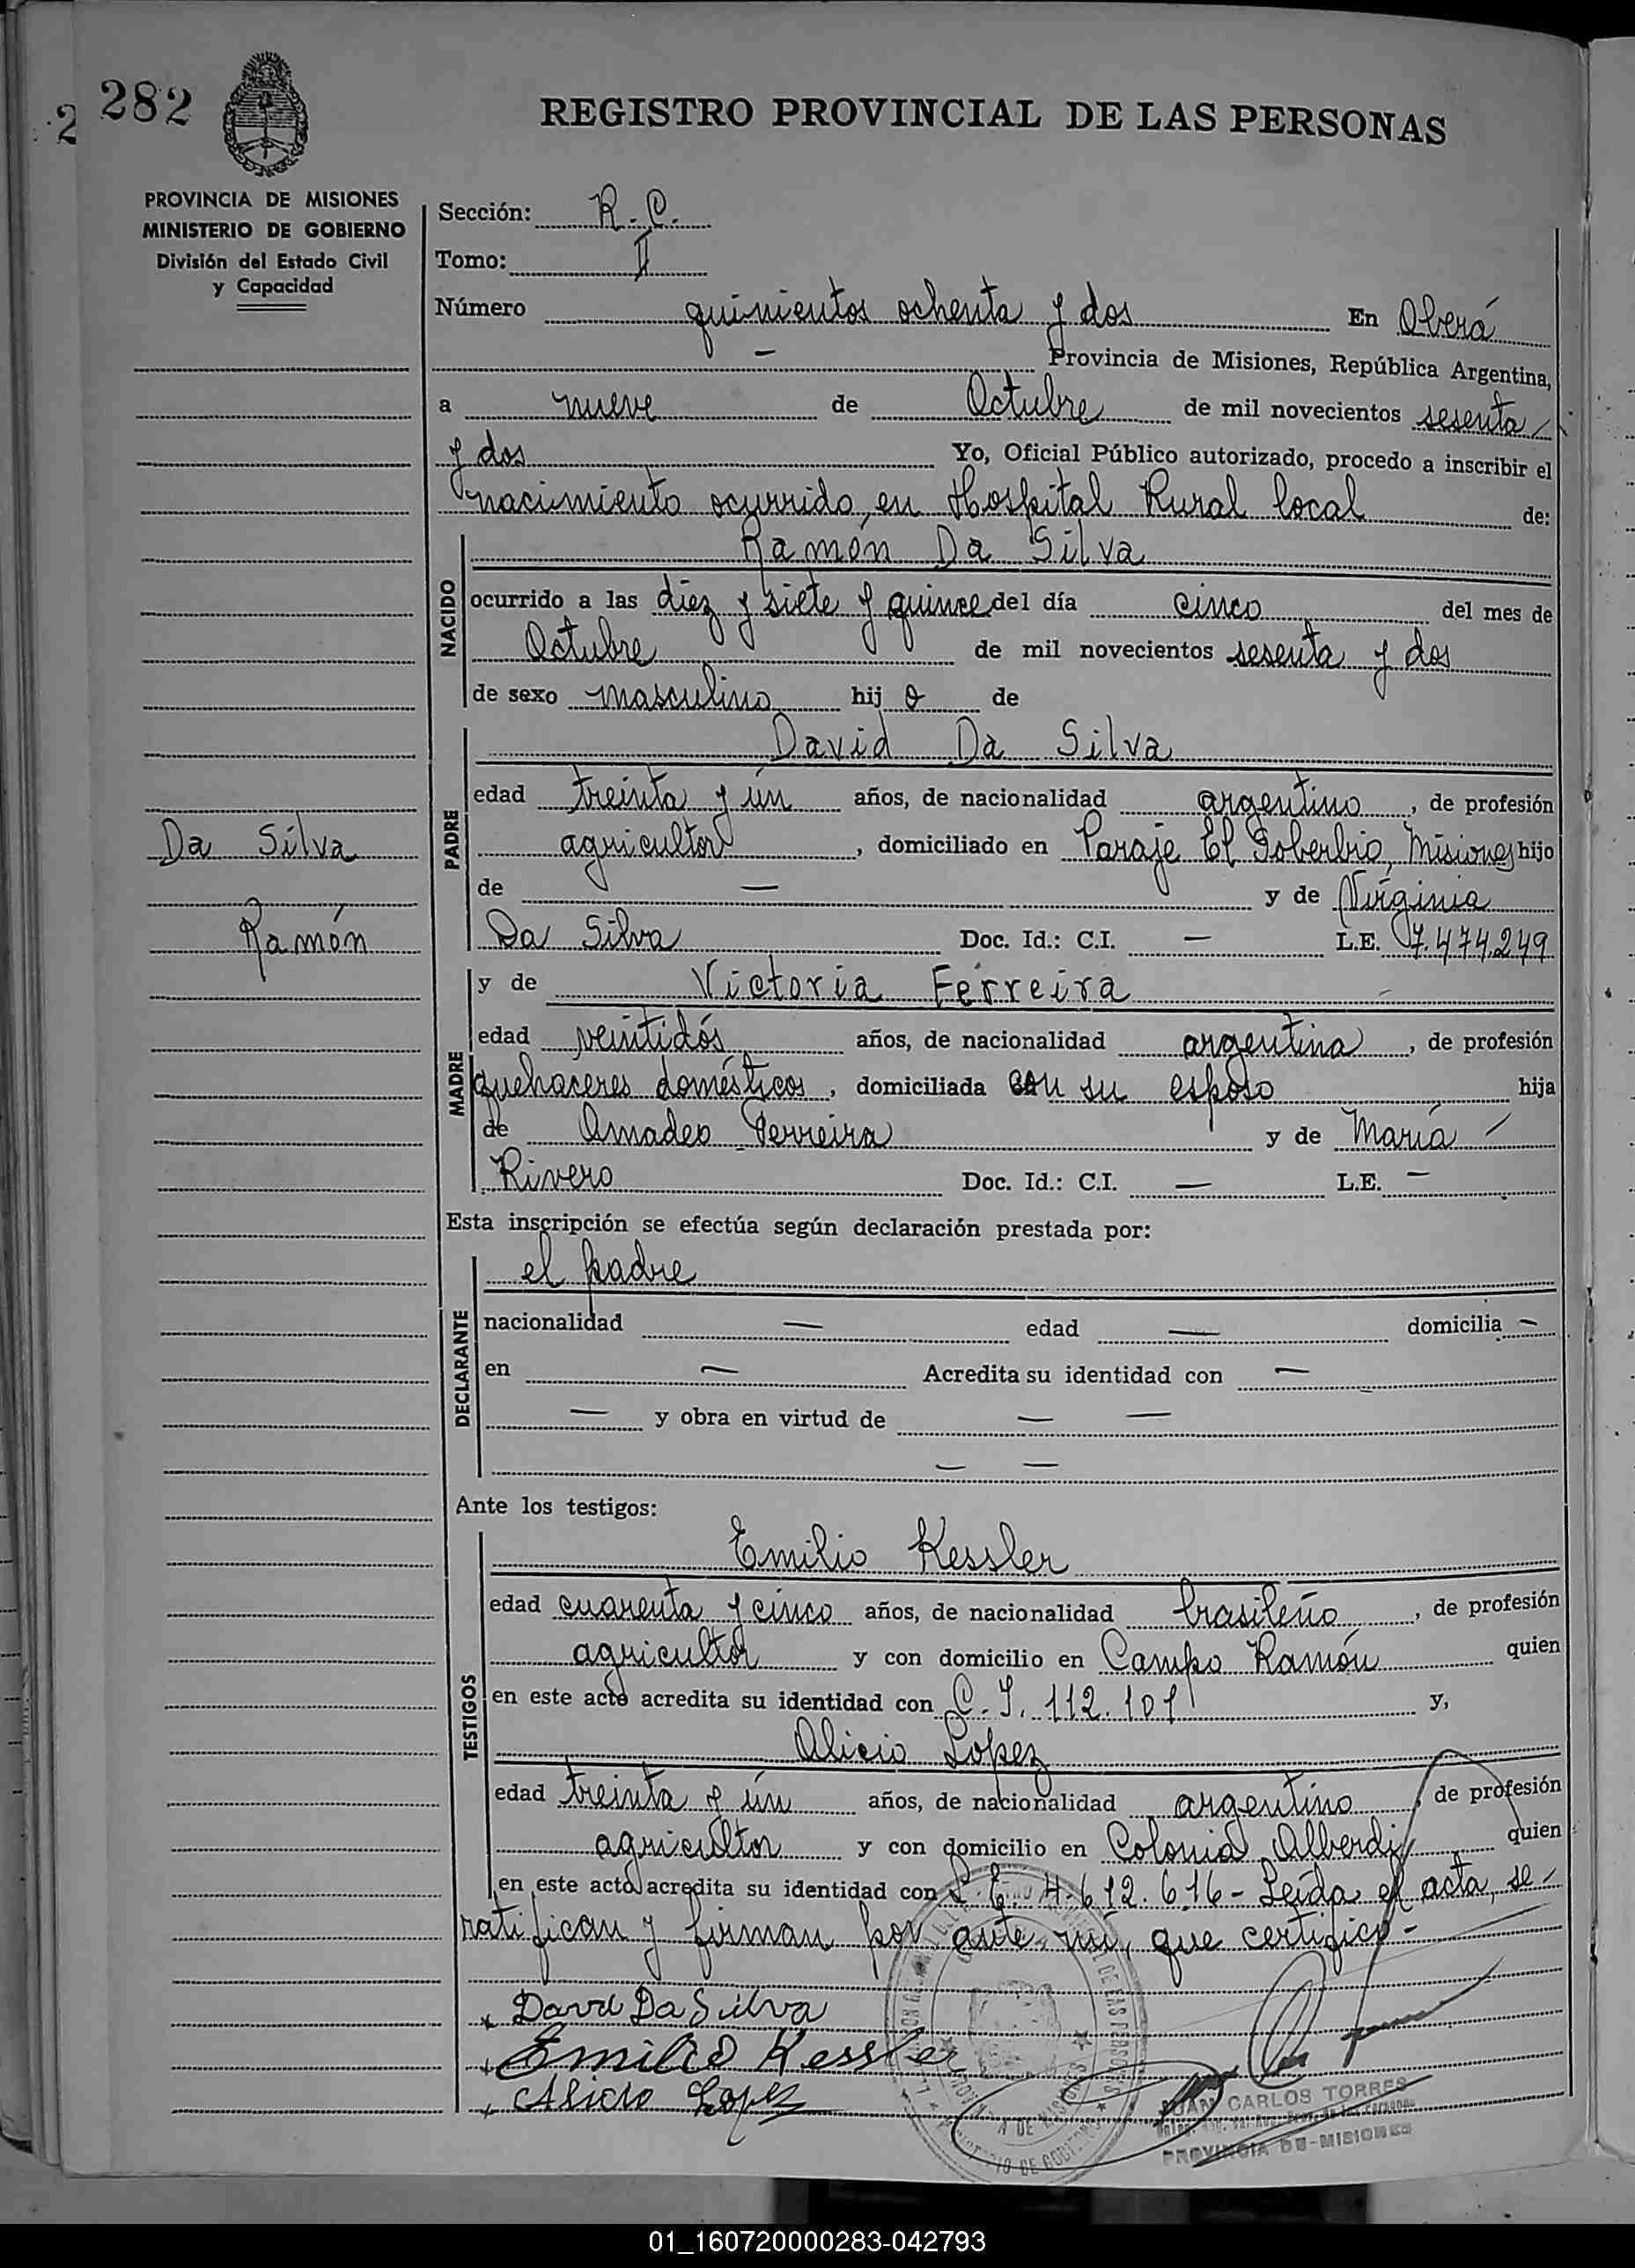 282
2
REGISTRO PROVINCIAL DE LAS PERSONAS
PROVINCIA DE MISIONES
MINISTERIO DE GOBIERNO
División del Estado Civil
y Capacidad
Sección: R. C.
Tomo: II
Número quinientos ochenta y dos En Oberá
— Provincia de Misiones, República Argentina,
a nueve de Octubre de mil novecientos sesenta
y dos Yo, Oficial Público autorizado, procedo a inscribir el
nacimiento ocurrido, en Hospital Rural local de:
NACIDO
Ramón Da Silva
ocurrido a las diez y siete y quince del día cinco del mes de
Octubre de mil novecientos sesenta y dos
de sexo masculino hij o de
PADRE
David Da Silva
edad treinta y ún años, de nacionalidad argentino, de profesión
agricultor, domiciliado en Paraje El Soberbio, Misiones hijo
de — y de Virginia
Da Silva Doc. Id.: C.I. — L.E. 7.474.249
Da Silva
Ramón
MADRE
y de Victoria Ferreira
edad veintidós años, de nacionalidad argentina, de profesión
quehaceres domésticos, domiciliada con su esposo hija
de Amadeo Ferreira y de María
Rivero Doc. Id.: C.I. — L.E. —
Esta inscripción se efectúa según declaración prestada por:
DECLARANTE
el padre
nacionalidad — edad — domicilia —
en — Acredita su identidad con —
— y obra en virtud de — —
— —
Ante los testigos:
TESTIGOS
Emilio Kessler
edad cuarenta y cinco años, de nacionalidad brasileño, de profesión
agricultor y con domicilio en Campo Ramón quien
en este acto acredita su identidad con C. I. 112.101 y,
Alicio Lopez
edad treinta y ún años, de nacionalidad argentino, de profesión
agricultor y con domicilio en Colonia Alberdi quien
en este acto acredita su identidad con L. E. 4.612.616- Leída el acta, se
ratifican y firman por ante mí, que certifico-
x David Da Silva
x Emilio Kessler
x Alicio Lopez
JUAN CARLOS TORRES
PROVINCIA DE MISIONES
01_160720000283-042793